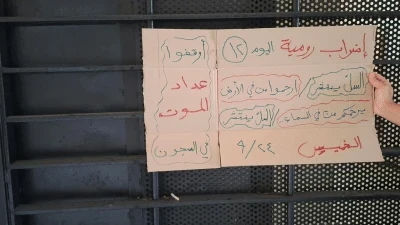 إضراب رومية اليوم (١٢)
السل ينتشر / ارحموا من في الأرض
يرحمكم من في السماء / السل ينتشر
الخميس ٩/٢٤
أوقفوا!
عداد
الموت
في السجون